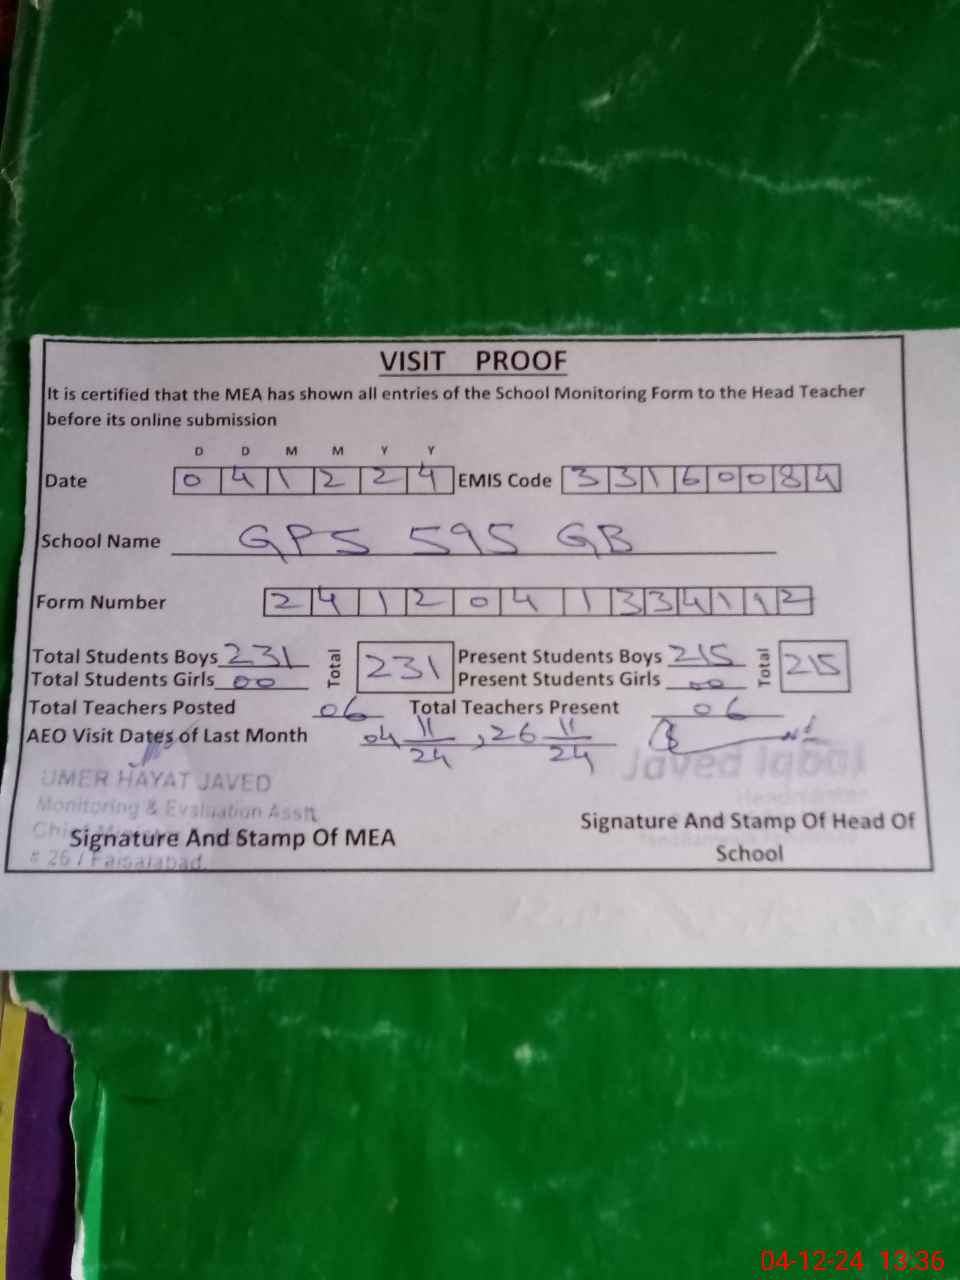 VISIT PROOF
It is certified that the MEA has shown all entries of the School Monitoring Form to the Head Teacher
before its online submission
D D M M Y Y
Date 0 4 1 2 2 4 EMIS Code 3 3 1 6 0 0 8 4
School Name GPS 595 GB
Form Number 2 4 1 2 0 4 1 3 3 4 1 1 2
Total Students Boys 231 Total 231 Present Students Boys 215 Total 215
Total Students Girls 00 Present Students Girls 00
Total Teachers Posted 06 Total Teachers Present 06
AEO Visit Dates of Last Month 04 11/24, 26 11/24
UMER HAYAT JAVED Javed Iqbal
Monitoring & Evaluation Asstt Headmaster
Signature And Stamp Of MEA Signature And Stamp Of Head Of
School
# 26 / Faisalabad.
04-12-24 13:36